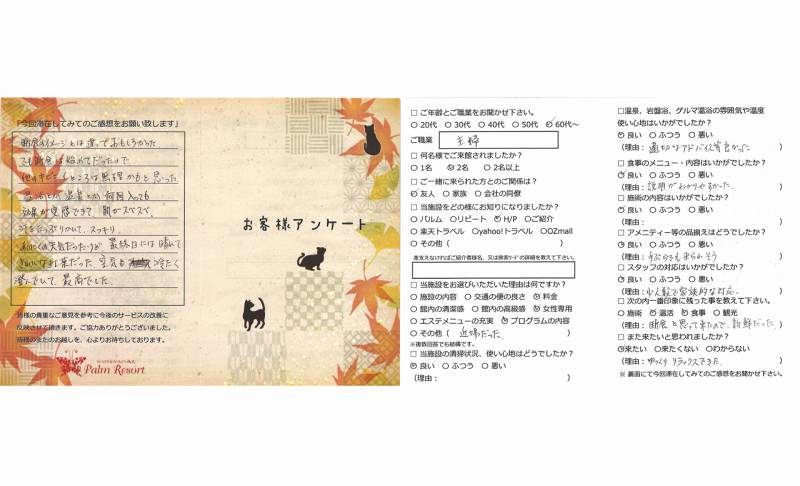 「今回滞在してみてのご感想をお願い致します」
断食のイメージとは違っておもしろかった
でも断食は始めてだったので
他のキビシイところは無理かもと思った
何回入っても
効果が実感できて 肌がスベスベ
汗をたっぷりかいて、スッキリ。
お天気だったけど 最終日には晴れて
きれいな紅葉だった 空気も冷たく
澄んでいて、最高でした。
皆様の貴重なご意見を参考に今後のサービスの改善に
反映させて頂きます。ご協力ありがとうございました。
皆様のまたのお越しを、心よりお待ちしております。
Palm Resort
お客様アンケート
□ ご年齢とご職業をお聞かせ下さい。
○ 20代 ○ 30代 ○ 40代 ○ 50代 ○ 60代～
ご職業 主婦
□ 何名様でご来館されましたか?
○ 1名 ○ 2名 ○ 2名以上
□ ご一緒に来られた方とのご関係は?
○ 友人 ○ 家族 ○ 会社の同僚
□ 当施設をどの様にお知りになりましたか?
○ パルム ○ リピート ○ H/P ○ ご紹介
○ 楽天トラベル ○ yahoo!トラベル ○ OZmall
○ その他 ( )
差支えなければご紹介者様名、又は検索ワードの詳細を教えて下さい。
□ 当施設をお選びいただいた理由は何ですか?
○ 施設の内容 ○ 交通の便の良さ ○ 料金
○ 館内の清潔感 ○ 館内の高級感 ○ 女性専用
○ エステメニューの充実 ○ プログラムの内容
○ その他 ( 近場だった )
※複数回答でも結構です。
□ 当施設の清掃状況、使い心地はどうでしたか?
○ 良い ○ ふつう ○ 悪い
(理由: )
□ 温泉、岩盤浴、ゲルマ温浴の雰囲気や温度
使い心地はいかがでしたか?
○ 良い ○ ふつう ○ 悪い
(理由: 適切なアドバイス等良かった )
□ 食事のメニュー・内容はいかがでしたか?
○ 良い ○ ふつう ○ 悪い
(理由: 説明がわかりやすかった )
□ 施術の内容はいかがでしたか?
○ 良い ○ ふつう ○ 悪い
(理由: )
□ アメニティー等の品揃えはどうでしたか?
○ 良い ○ ふつう ○ 悪い
(理由: 手ぶらでも来られそう )
□ スタッフの対応はいかがでしたか?
○ 良い ○ ふつう ○ 悪い
(理由: 小人数で家族的な対応。 )
□ 次の内一番印象に残った事を教えて下さい。
○ 施術 ○ 温活 ○ 食事 ○ 観光
(理由: 断食と思って来たので、新鮮だった )
□ また来たいと思われましたか?
○ 来たい ○ 来たくない ○ わからない
(理由: ゆっくりリラックスできた。 )
※ 裏面にて今回滞在してみてのご感想をお聞かせ下さい。